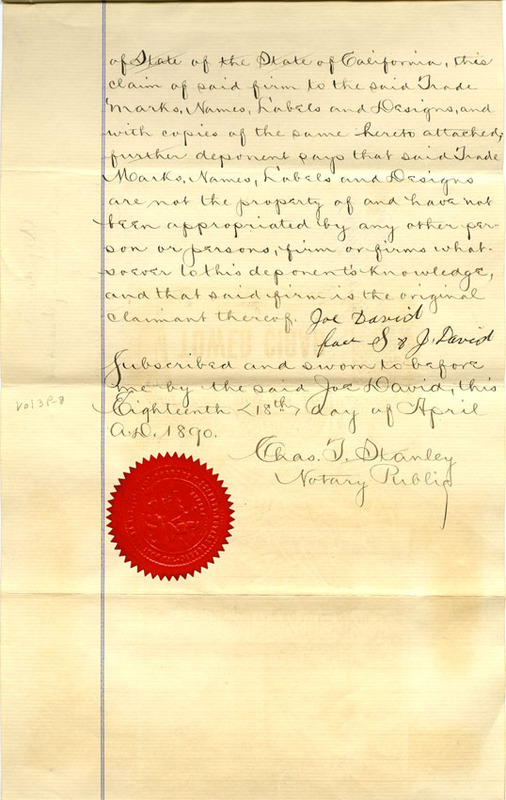 of State of the State of California, this
claim of said firm to the said Trade
Marks, Names, Labels and Designs, and
with copies of the same hereto attached;
further deponent says that said Trade
Marks, Names, Labels and Designs
are not the property of and have not
been appropriated by any other per-
son or persons, firm or firms what-
soever to this deponent's knowledge,
and that said firm is the original
claimant thereof. Joe David
for S & J. David
Subscribed and sworn to before
me by the said Joe David, this
Eighteenth <18th> day of April
A.D. 1890.
Chas. T. Stanley
Notary Public
Vol 3 P-8